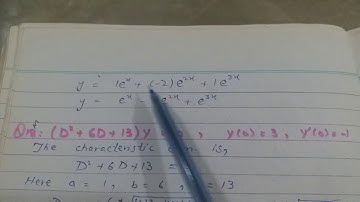 y = 1e^x + (-2) e^2x + 1 e^3x
y = e^x - e^2x + e^3x
Qno: (D² + 6D + 13) y , y(0) = 3 , y'(0) = -1
The characteristic eqn. is,
D² + 6D + 13 =
Here a = 1, b = 6 , = 13